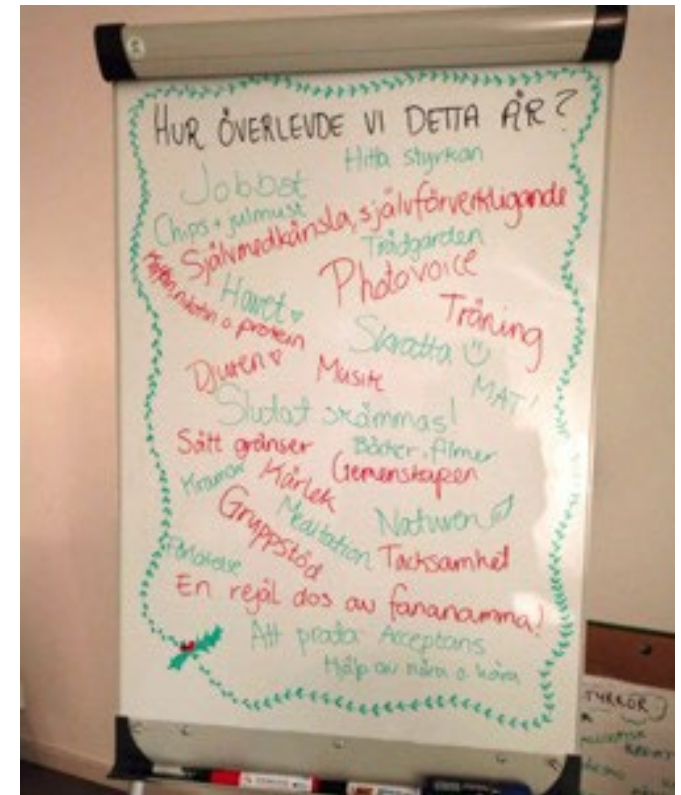 HUR ÖVERLEVDE VI DETTA ÅR?
Hitta styrkan
Jobbat
Chips + julmust
Självmedkänsla, självförverkligande
Trädgården
Photovoice
Havet
nikotin o protein
Träning
Skratta
Djuren
Musik
MAT!
Slutat skämmas!
Sätt gränser
Böcker, filmer
Kramar
Kärlek
Gemenskapen
Meditation
Naturen
Gruppstöd
Tacksamhet
Förlåtelse
En rejäl dos av fananamma!
Att prata
Acceptans
Hjälp av nära o kära